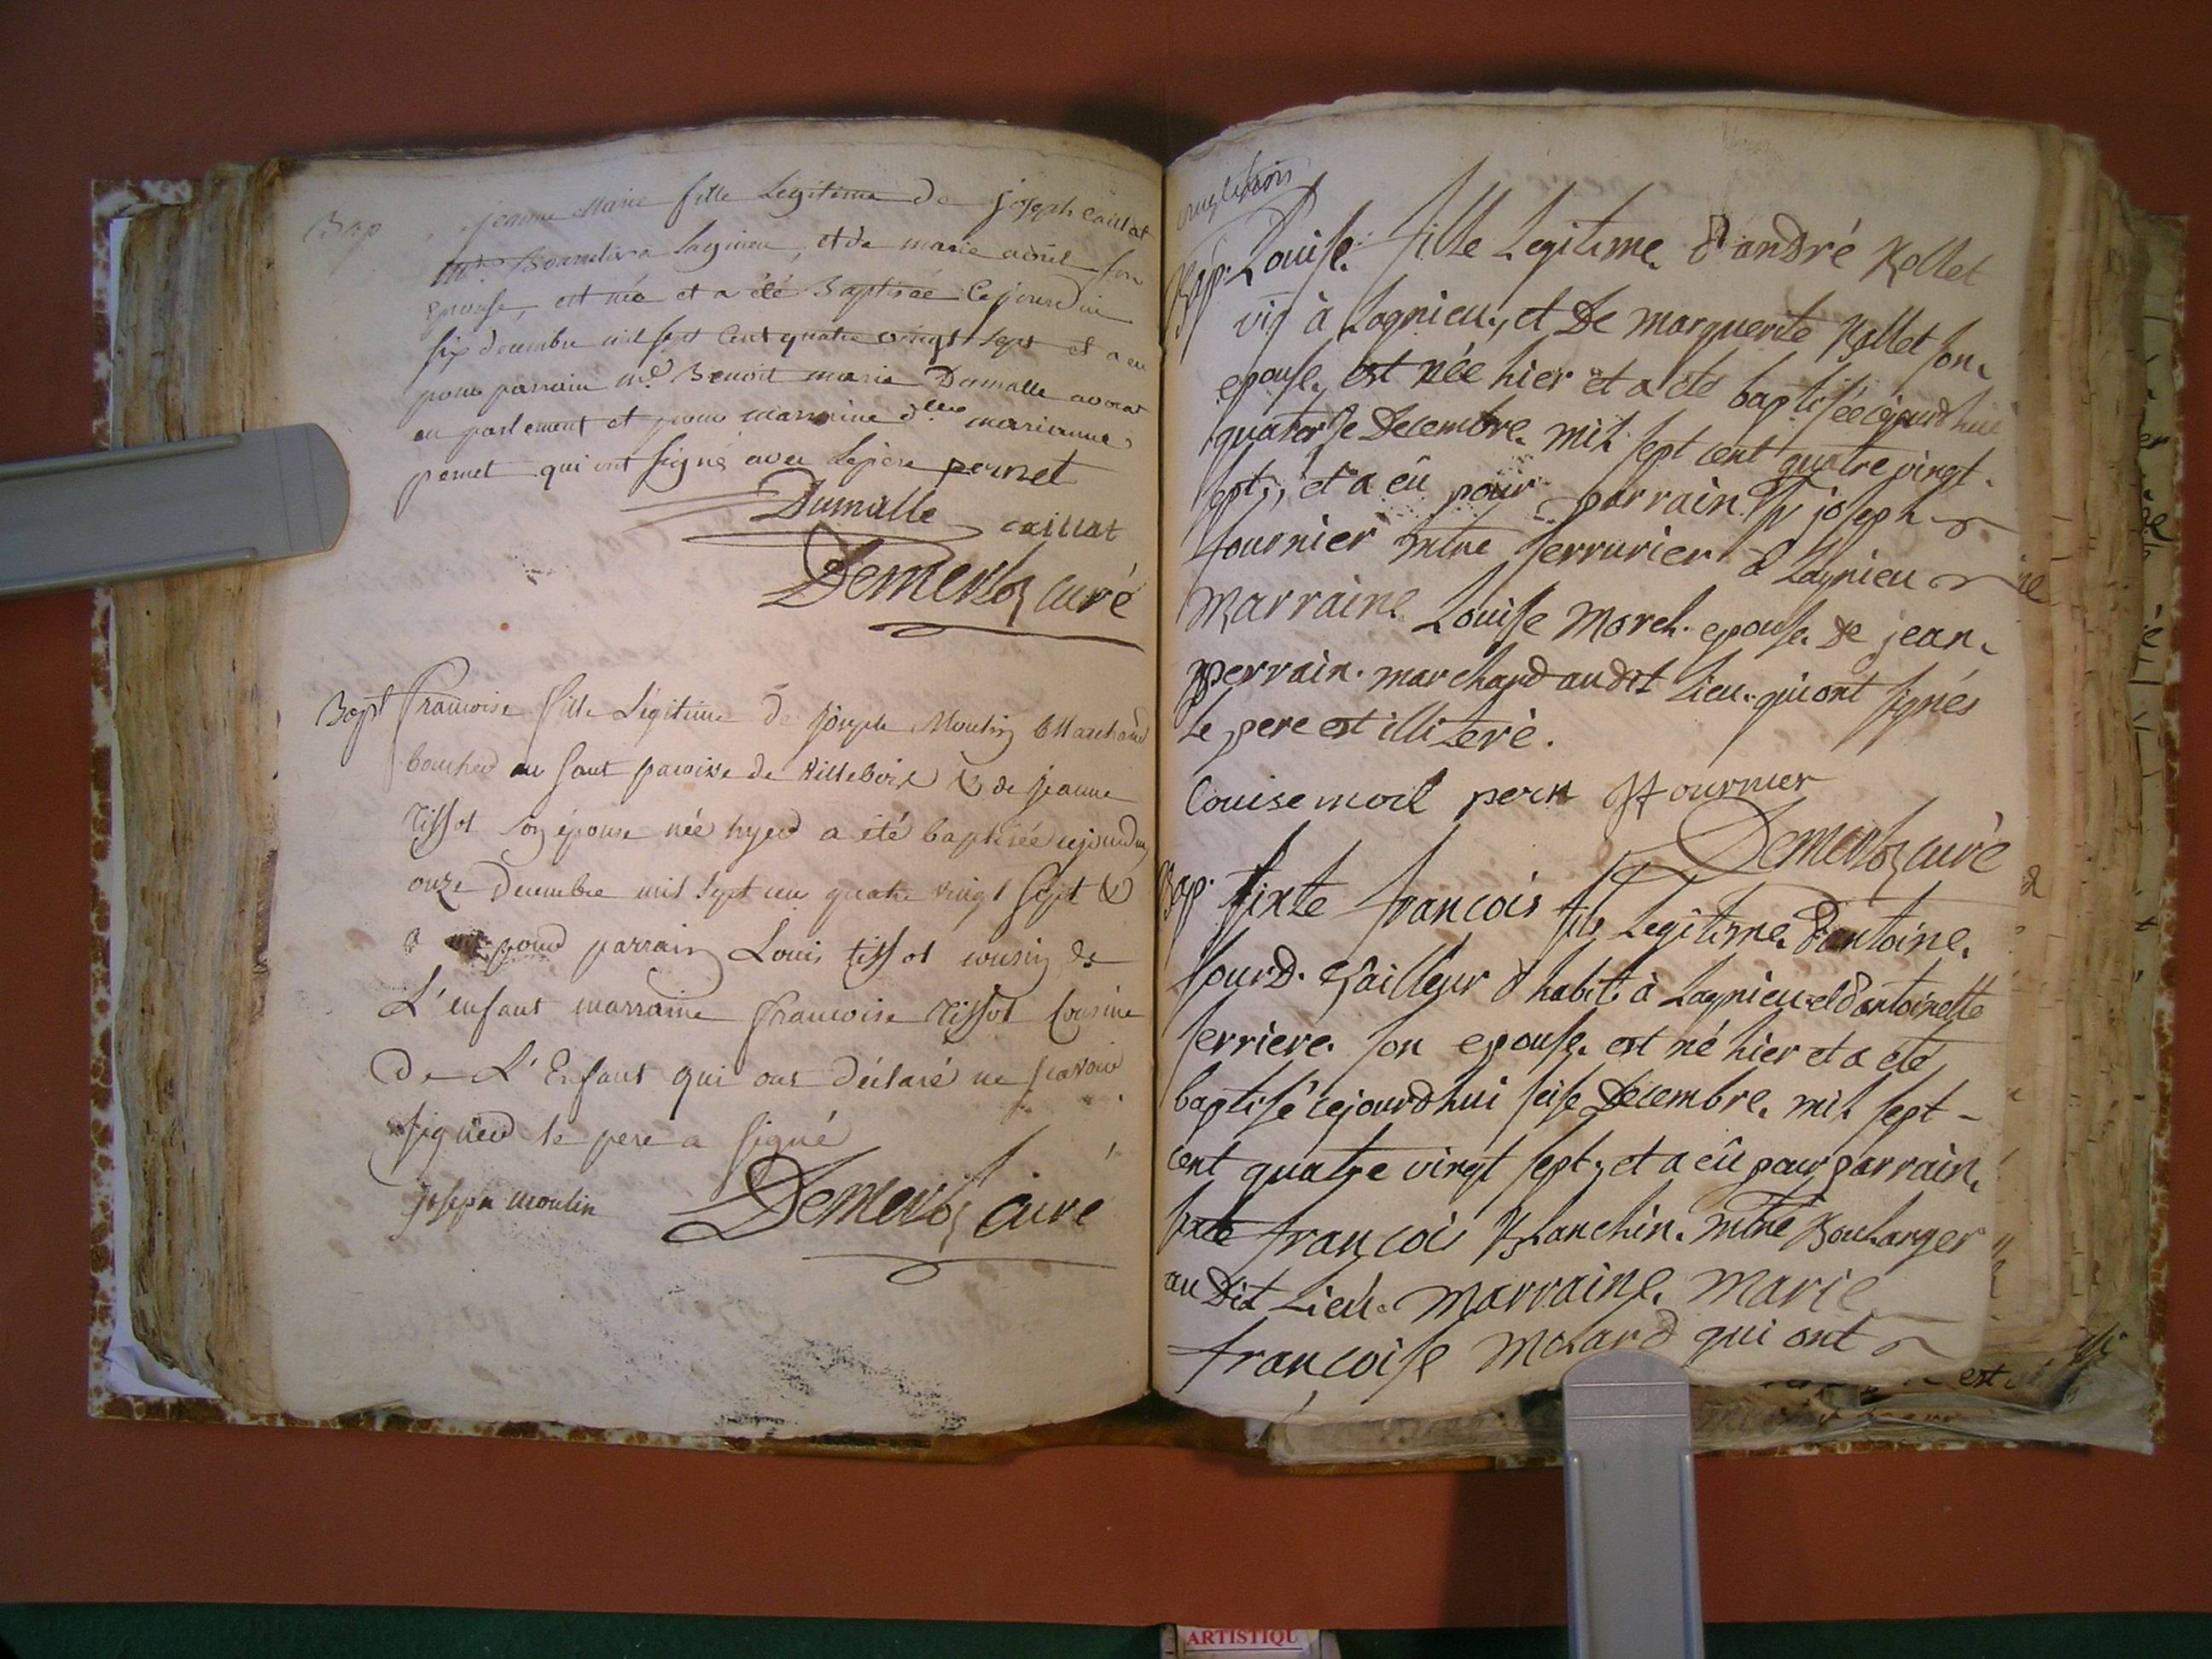 Bap jeanne Marie fille Legitime de joseph caillat
Md Bourrelier a lagnieu, et de marie
epouse, est née et a été Baptisée Cejourdui
six decembre mil sept Cent quatre vingt sept et a eu
pour parrain me Benoit marie Dumalle avocat
en parlement et pour marraine dlle marianne
pernet qui ont signé avec Lepère pernet
Dumalle caillat
Demerloz curé
Bapt francoise fille Légitime de joseph Moulin Marchand
boucher au saut paroisse de villebois & de jeanne
tissot son épouse née hyer a été baptisée cejourduy
onze decembre mil sept cen quatre vingt sept &
a pour parrain Louis tissot cousin de
L'enfant marraine francoise tissot Cousine
De L'Enfant qui ont déclaré ne scavoir
signer le pere a signé
joseph moulin Demerloz curé
Bap. Louise fille Legitime d'andré Rollet
vig à Lagnieu, et De marguerite Rollet son
epouse, est née hier et a eté baptisée cejourdhui
quatorse Decembre mil sept cent quatre vingt
sept, et a eû pour parrain Sr joseph
fournier mtre serrurier à Lagnieu
Marraine Louise Morel epouse de jean
perrain marchand audit Lieu qui ont signés
Le pere est illiteré.
Louise morel JFournier
Demerloz curé
Bap. sixte francois fils Legitime d'antoine
sourd tailleur d'habit à Lagnieu et d'antoinette
ferriere son epouse est né hier et a eté
baptisé cejourdhui seise Decembre mil sept
cent quatre vingt sept, et a eû pour parrain
sixte françois Blanchin mtre Boulanger
au Dit Lieu Marraine Marie
francoise Molard qui ont
est
ARTISTIQU